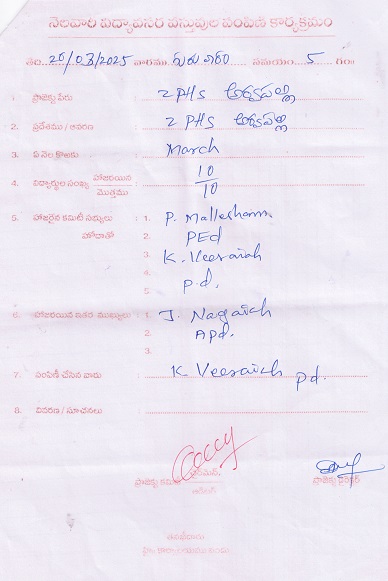 నెలవారి విద్యావసర వస్తువుల పంపిణి కార్యక్రమం
తేది. 20/03/2025 వారము గురువారం సమయం 5 గం౹౹
1. ప్రాజెక్టు పేరు : ZPHS
2. ప్రదేశము / ఆవరణ : ZPHS
3. ఏ నెల కొరకు : March
4. విద్యార్థుల సంఖ్య హాజరయిన / మొత్తము : 10/10
5. హాజరైన కమిటీ సభ్యులు : 1. P. Mallesham
హోదాతో 2. PEd
3. K. Veeraiah
4. P.d.
5.
6. హాజరయిన ఇతర ముఖ్యులు : 1. J. Nagaiah
2. APd.
3.
7. పంపిణీ చేసిన వారు : K. Veeraiah Pd.
8. వివరణ / సూచనలు :
ప్రాజెక్టు కమిటీ చైర్మన్, ప్రాజెక్టు డైరెక్టర్